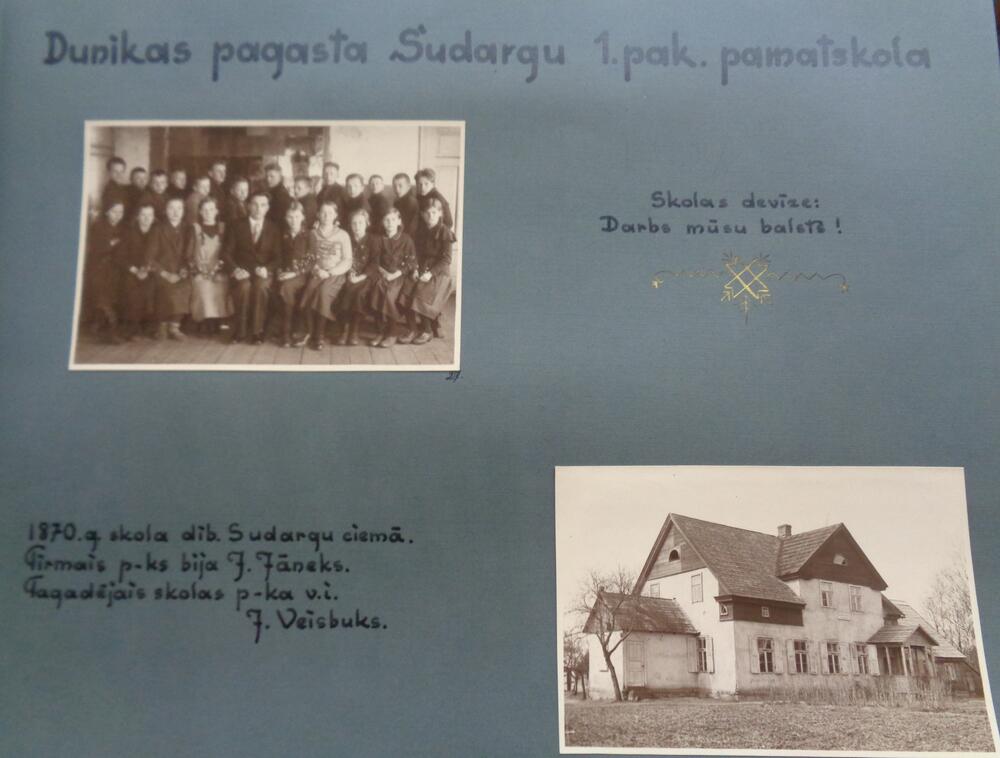 Dunikas pagasta Sudargu 1.pak. pamatskola
Skolas devīze:
Darbs mūsu balsts!
27.
1870.g skola dib. Sudargu ciemā.
Pirmais p-ks bija J. Jāneks.
Tagadējais skolas p-ka v.i.
J. Veisbuks.